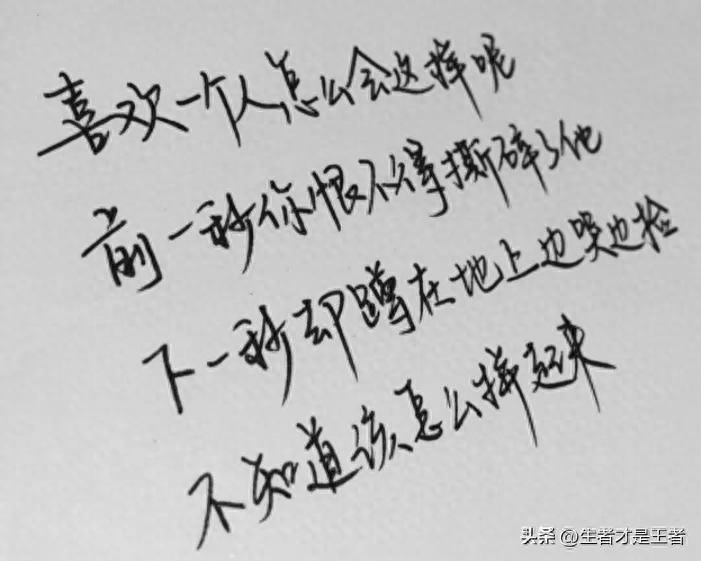 喜欢一个人怎么会这样呢
前一秒你恨不得撕碎了他
下一秒却蹲在地上边哭边捡
不知道该怎么拼起来
头条 @生者才是王者